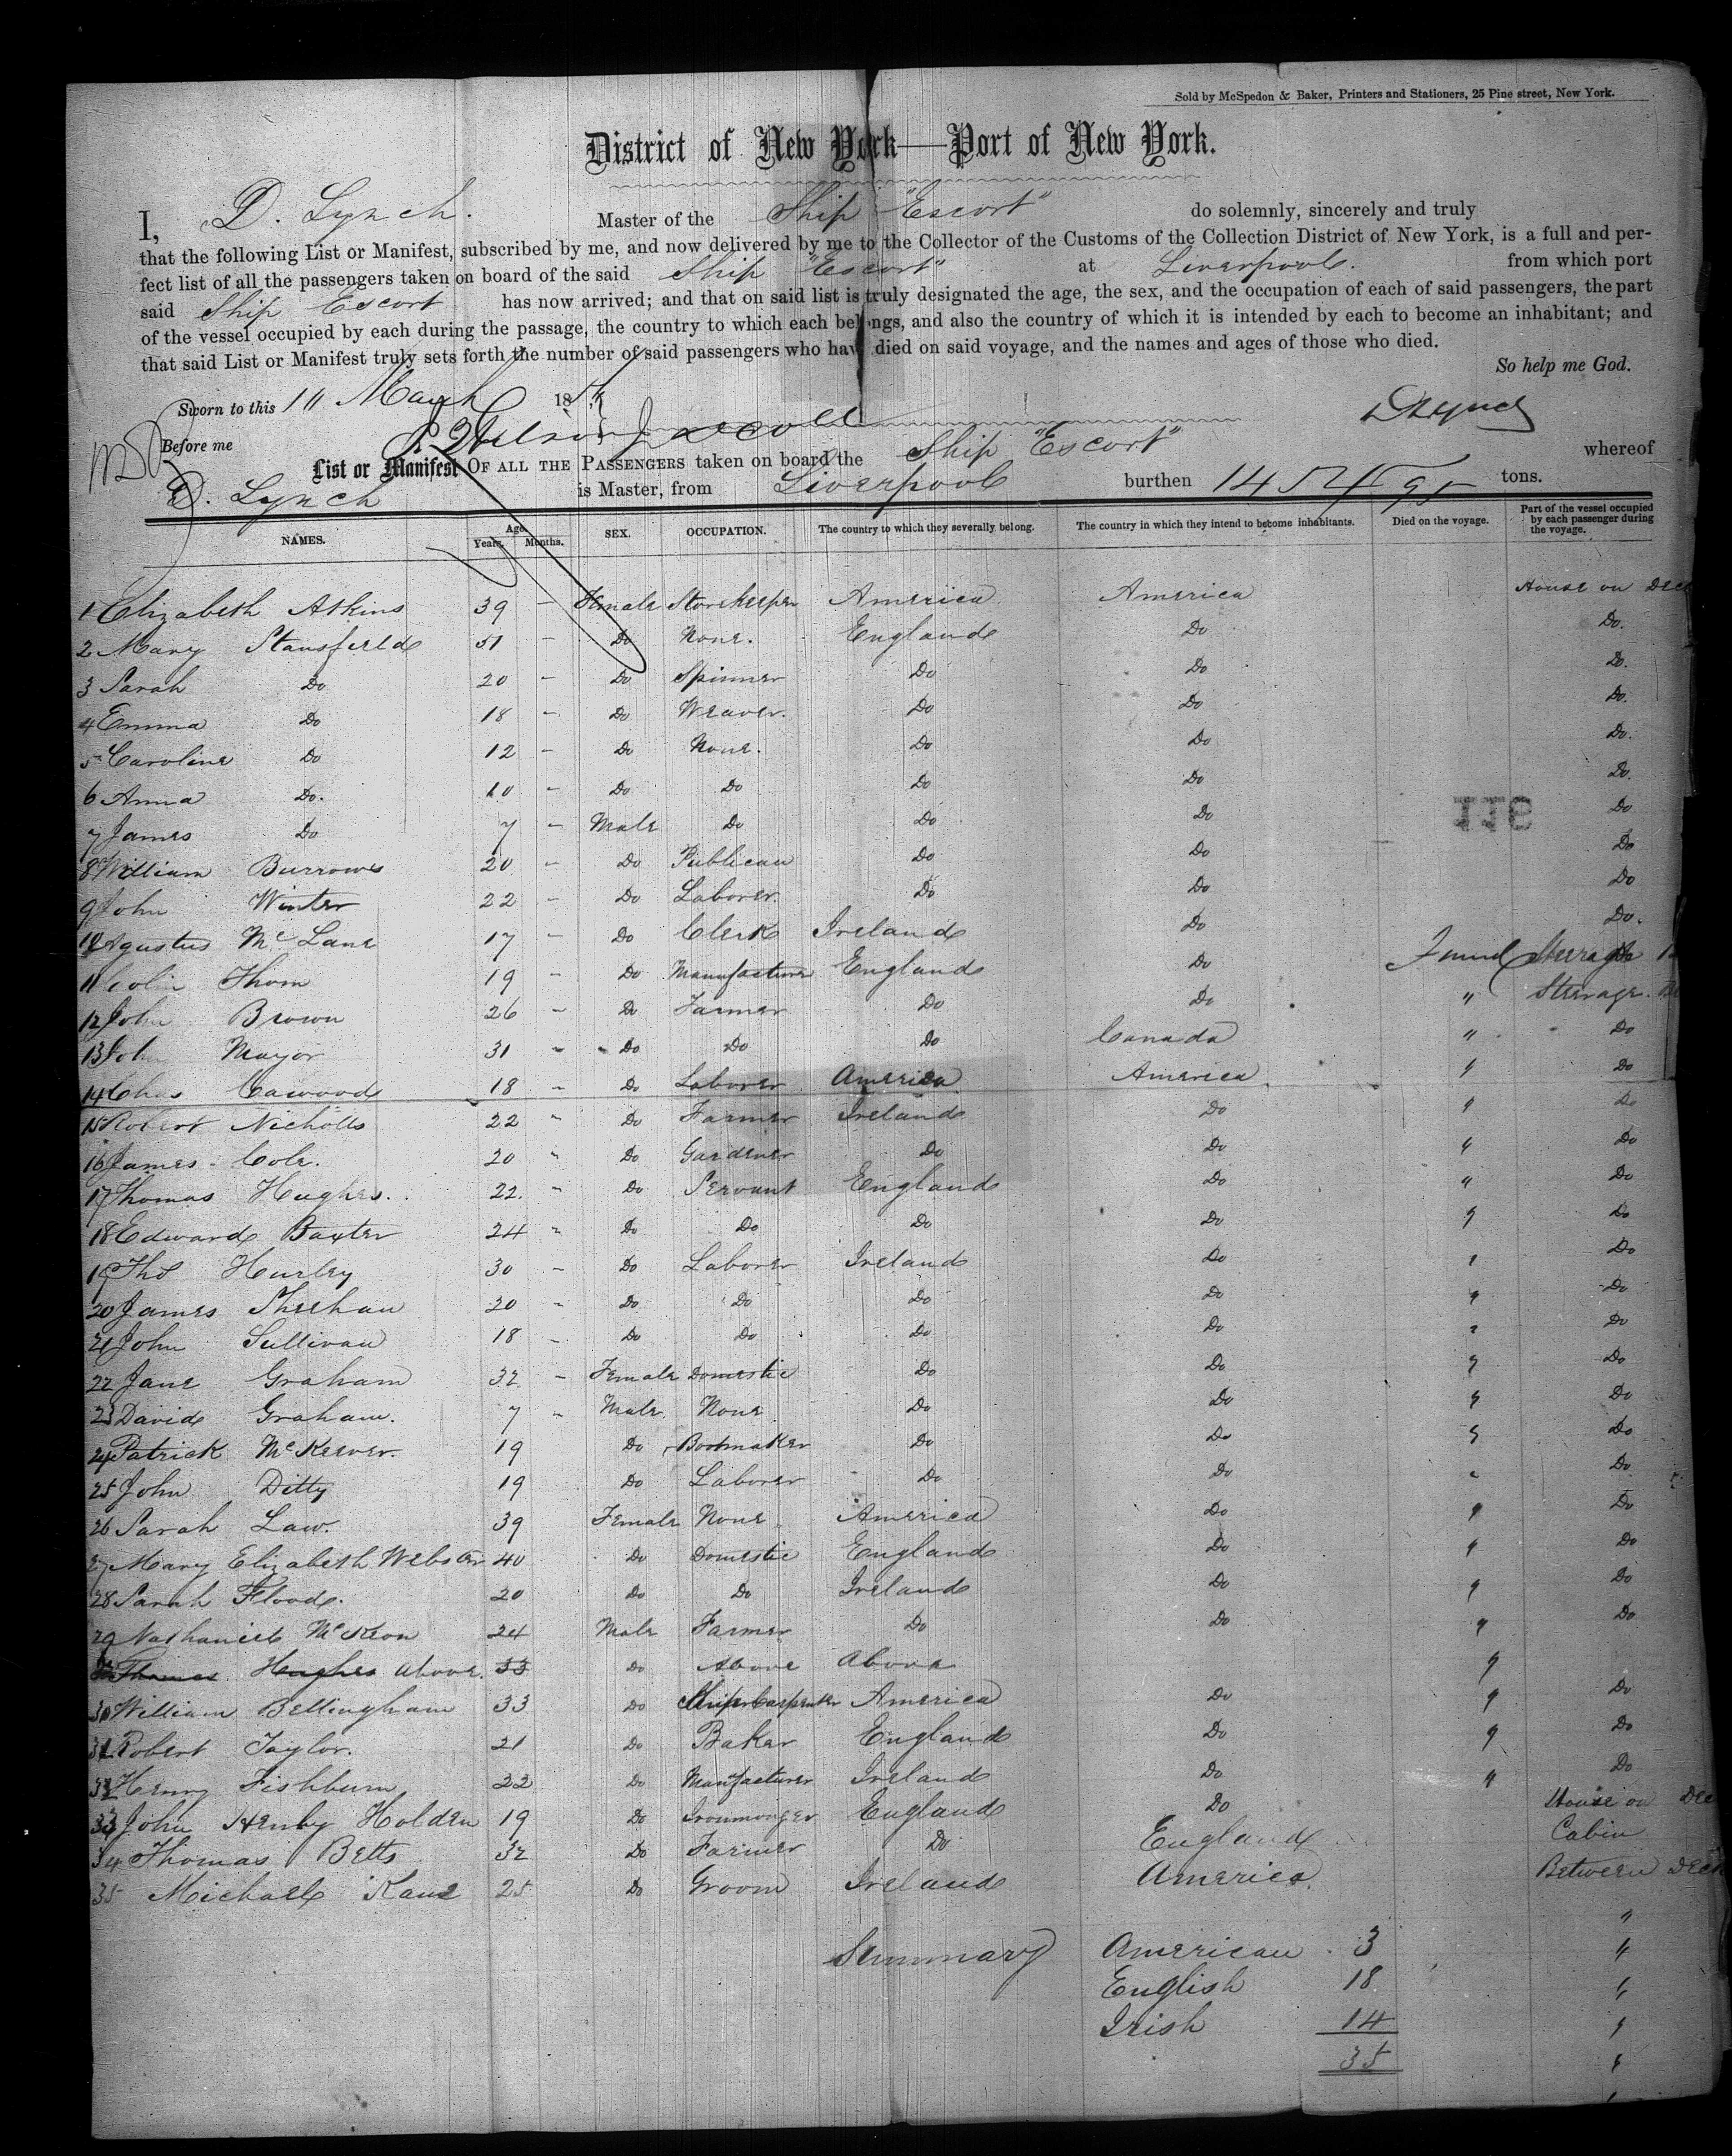 Sold by McSpedon & Baker, Printers and Stationers, 25 Pine street, New York.
District of New York—Port of New York.
I, D. Lynch. Master of the Ship "Escort" do solemnly, sincerely and truly
that the following List or Manifest, subscribed by me, and now delivered by me to the Collector of the Customs of the Collection District of New York, is a full and per-
fect list of all the passengers taken on board of the said Ship "Escort" at Liverpool. from which port
said Ship Escort has now arrived; and that on said list is truly designated the age, the sex, and the occupation of each of said passengers, the part
of the vessel occupied by each during the passage, the country to which each belongs, and also the country of which it is intended by each to become an inhabitant; and
that said List or Manifest truly sets forth the number of said passengers who have died on said voyage, and the names and ages of those who died.
So help me God.
Sworn to this 11 March 18
DLynch
Before me
List or Manifest OF ALL THE PASSENGERS taken on board the Ship "Escort" whereof
D. Lynch is Master, from Liverpool burthen 1454 95 tons.
NAMES. Age Years. Months. SEX. OCCUPATION. The country to which they severally belong. The country in which they intend to become inhabitants. Died on the voyage. Part of the vessel occupied by each passenger during the voyage.
1 Elizabeth Atkins 39 - Female Storekeeper America America House on Deck
2 Mary Stansfield 51 - Do None. England Do Do.
3 Sarah Do 20 - Do Spinner Do Do Do.
4 Emma Do 18 - Do Weaver. Do Do Do.
5 Caroline Do 12 - Do None. Do Do Do.
6 Anna Do. 10 - Do Do Do Do Do.
7 James Do 7 - Male Do Do Do Do
8 William Burrows 20 - Do Publican Do Do Do
9 John Winter 22 - Do Laborer. Do Do Do
10 Agustus McLane 17 - Do Clerk Ireland Do Do.
11 Colin Thom 19 - Do Manufacturer England Do Steerage
12 John Brown 26 - Do Farmer Do Do " Steerage.
13 John Mayor 31 - Do Do Do Canada " Do
14 Chas Cawood 18 - Do Laborer America America " Do
15 Robert Nicholls 22 - Do Farmer Ireland Do " Do
16 James Cole. 20 - Do Gardener Do Do " Do
17 Thomas Hughes. 22. - Do Servant England Do " Do
18 Edward Baxter 24 - Do Do Do Do " Do
19 Thos Hurley 30 - Do Laborer Ireland Do " Do
20 James Sheehan 20 - Do Do Do Do " Do
21 John Sullivan 18 - Do Do Do Do " Do
22 Jane Graham 32 - Female Domestic Do Do " Do
23 David Graham. 7 - Male None Do Do " Do
24 Patrick McKeever. 19 Do Bootmaker Do Do " Do
25 John Ditty 19 Do Laborer Do Do " Do
26 Sarah Law. 39 Female None America Do " Do
27 Mary Elizabeth Webster 40 Do Domestic England Do " Do
28 Sarah Flood. 20 Do Do Ireland Do " Do
29 Nathaniel McKeon 24 Male Farmer Do Do " Do
Thomas Hughes above. 33 Do Above Above "
30 William Bellingham 33 Do Ship Carpenter America Do " Do
31 Robert Taylor. 21 Do Baker England Do " Do
32 Henry Fishburn 22 Do Manufacturer Ireland Do " Do
33 John Henby Holden 19 Do Ironmonger England Do House on Deck
34 Thomas Betts 32 Do Farmer Do England Cabin
35 Michael Kane 25 Do Groom Ireland America Between Deck
Summary American 3
English 18
Irish 14
35